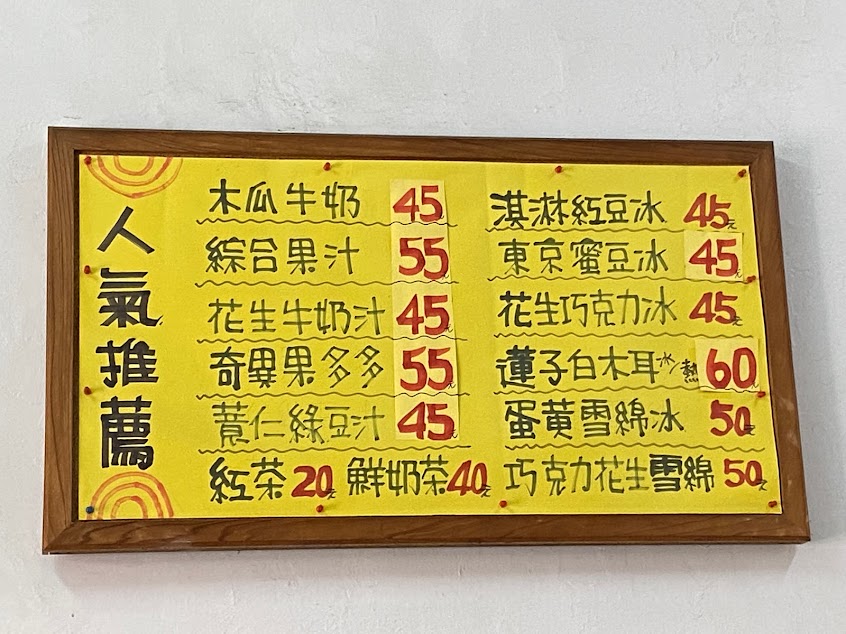 人氣推薦
木瓜牛奶 45元
綜合果汁 55元
花生牛奶汁 45元
奇異果多多 55元
薏仁綠豆汁 45元
紅茶 20元 鮮奶茶 40元
淇淋紅豆冰 45元
東京蜜豆冰 45元
花生巧克力冰 45元
蓮子白木耳冰/熱 60元
蛋黃雪綿冰 50元
巧克力花生雪綿 50元